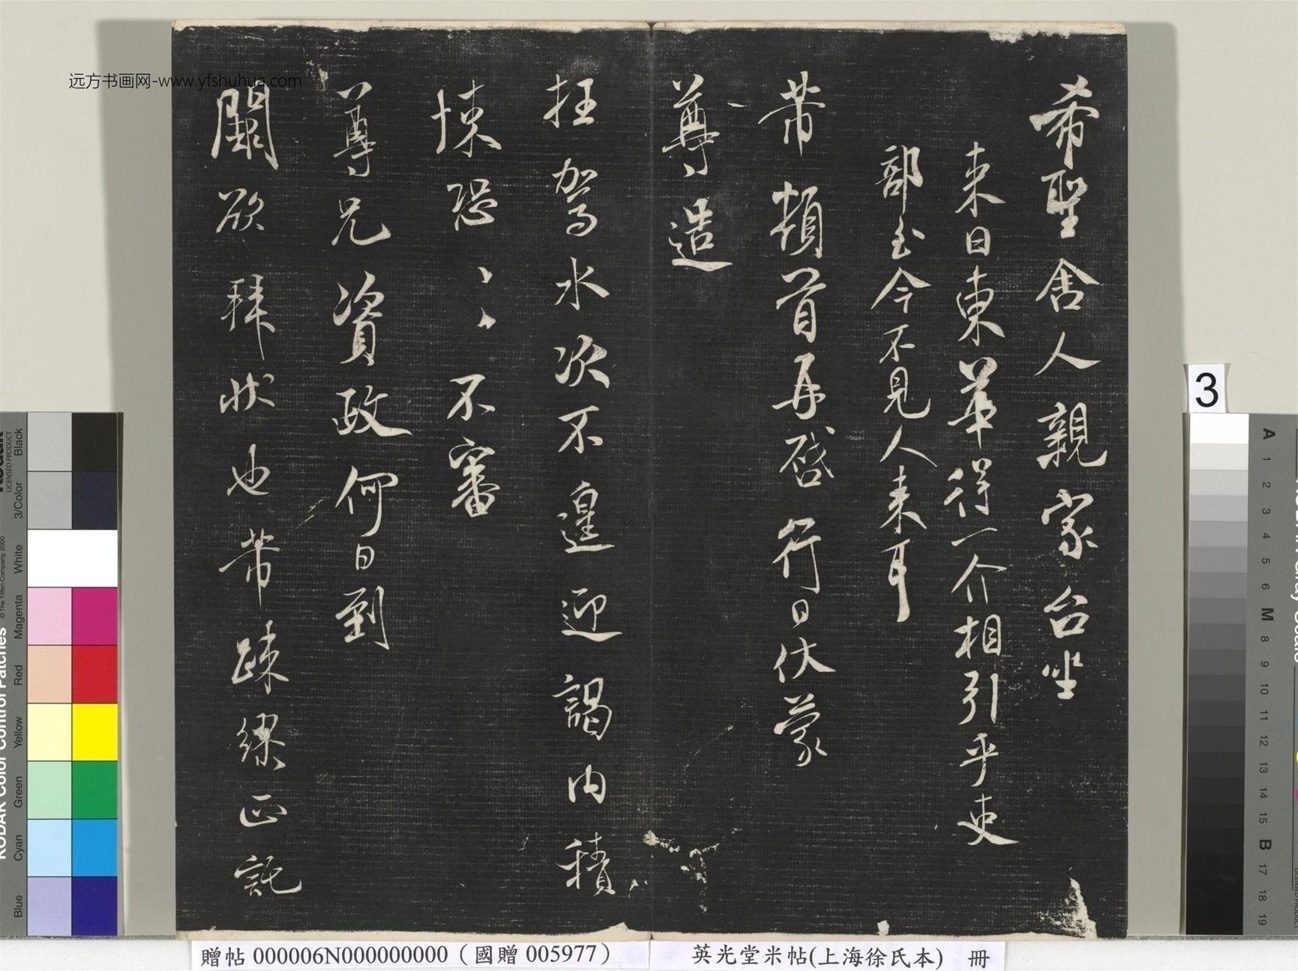 希聖舍人親家台坐
来日東華得一介相引乎吏
部至今不見人来耳
芾頓首再啓行日伏蒙
尊造
枉駕水次不遑迎謁内積
悚恐〻〻不審
尊兄資政何日到
闕欲拜狀也芾疎繆正託
远方书画网-www.yfshuhua.com
贈帖 000006N000000000（國贈 005977）
英光堂米帖(上海徐氏本) 冊
3
KODAK Color Control Patches
LICENSED PRODUCT
Black
3/Color
White
Magenta
Red
Yellow
Green
Cyan
Blue
A 1 2 3 4 5 6 M 8 9 10 11 12 13 14 15 B 17 18 19